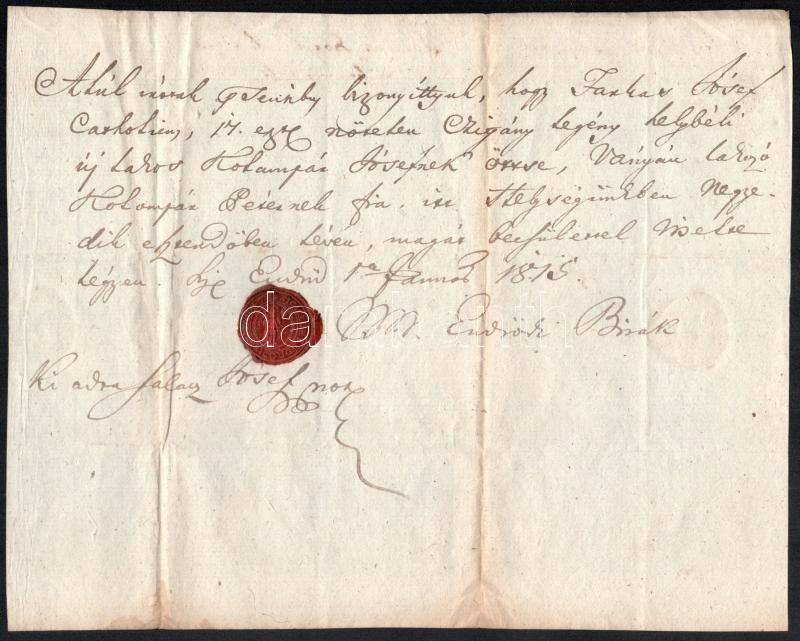 Alúl irottak p sentibus bizonyittyuk, hogy Farkas Jósef
Catholicus, 14. eszt nötelen Czigány Legény helybéli
új Lakos Kolompár Jósefnek öttse, Ványán Lakozó
Kolompár Péternek fia, itt Helységünkben Negye-
dik esztendöben lévén, magát betsülettel viselte
légyen. Endrőd 1a Januar 1815.
Endrődi Birák
Ki adta Jósef not
darabanth